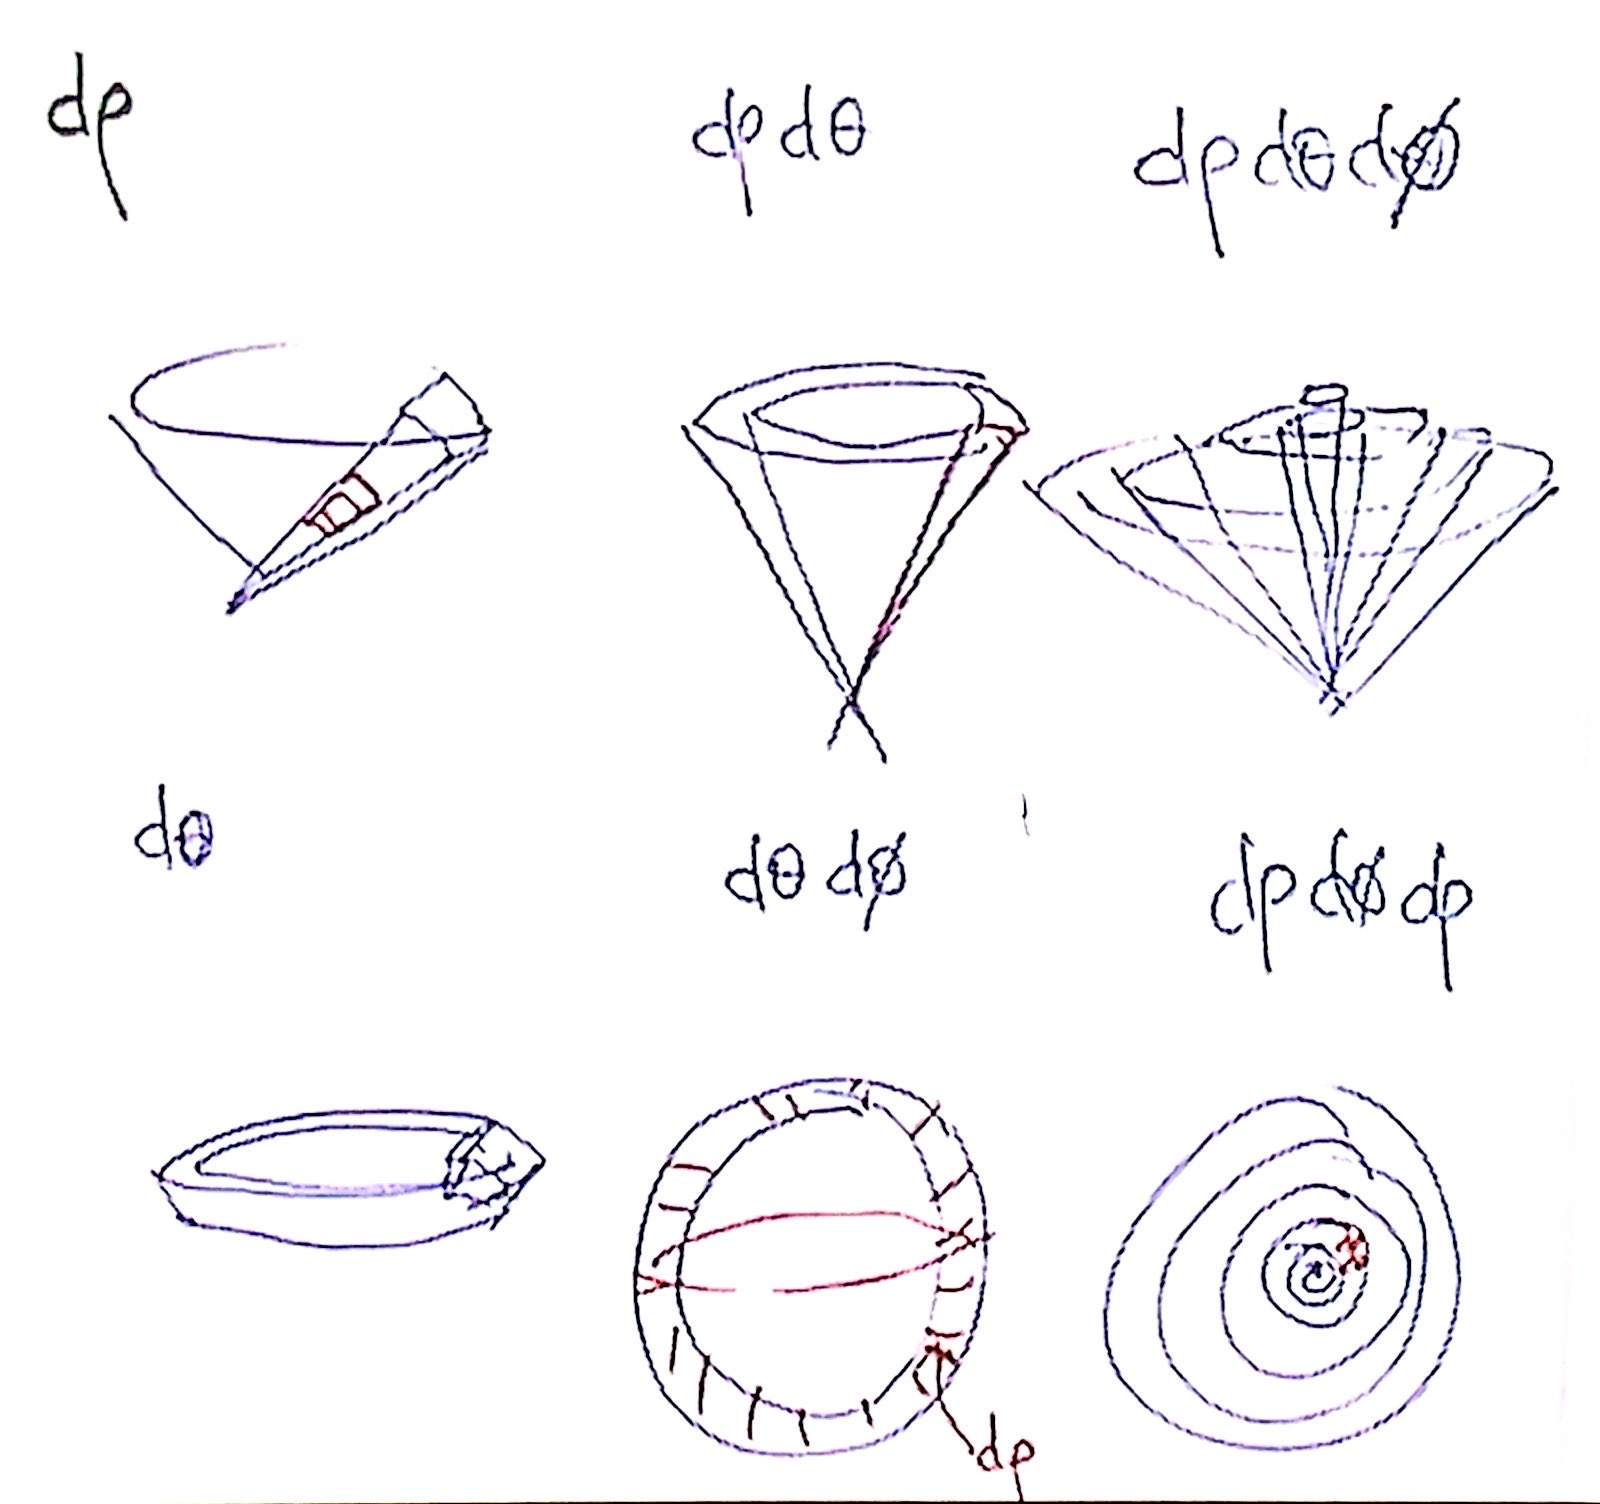 dρ
dρ dθ
dρ dθ dφ
dθ
dθ dφ
dρ dφ dρ
dρ